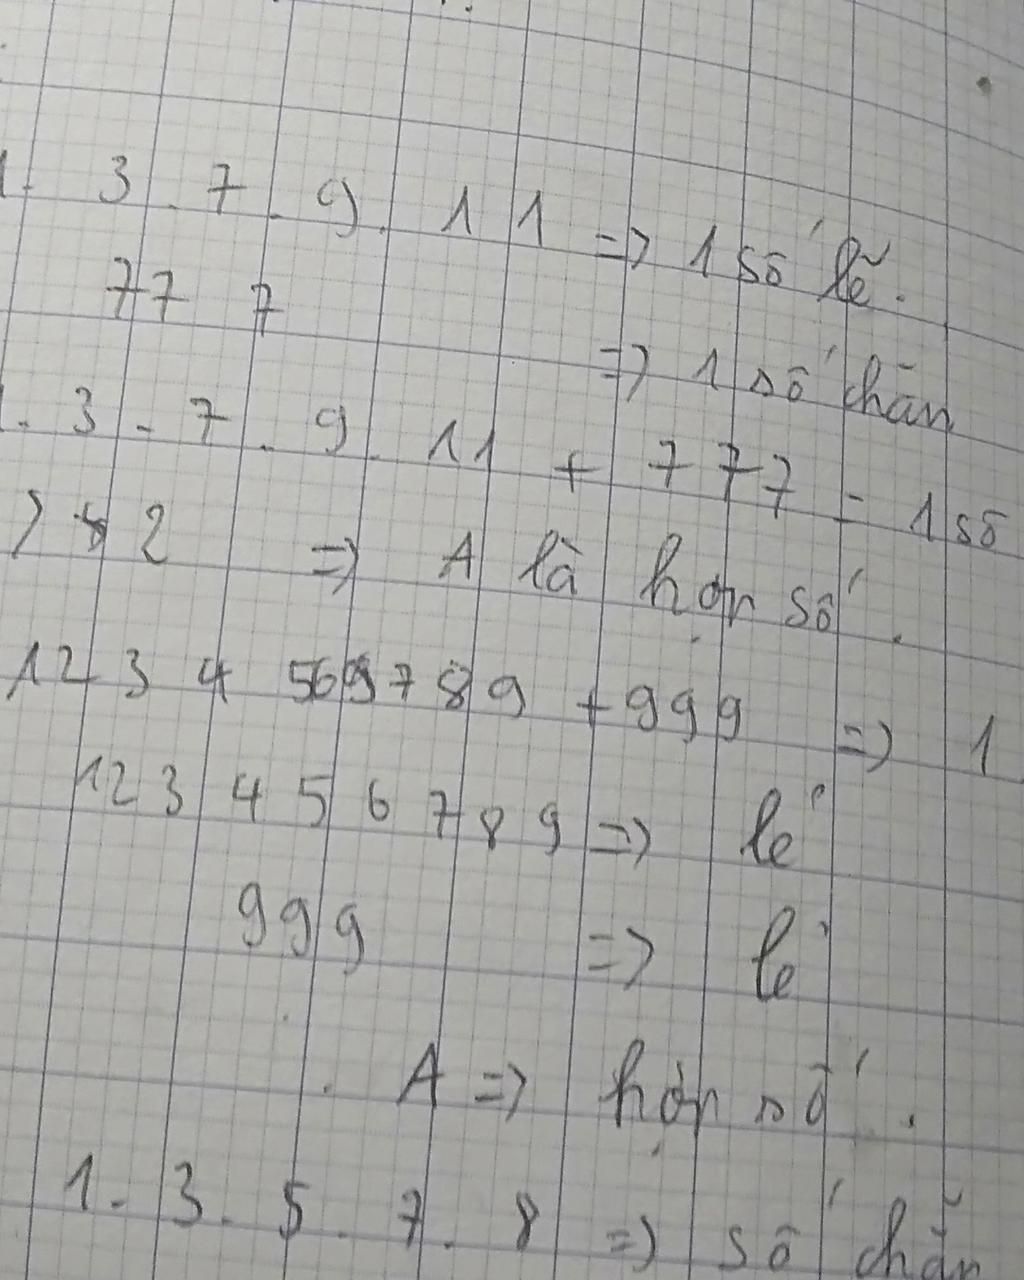 1. 3 . 7 . 9 . 11 => 1 số lẽ.
77 7
=> 1 số chăn
1. 3 - 7 . 9 . 11 + 777 = 1 số
> 2 => A là hợp số.
12 3 4 569789 + 999 => 1
12 3 4 5 6 7 8 9 => lẻ
999 => lẻ
A => hợp số.
1. 3. 5. 7. 8 => số chẵn